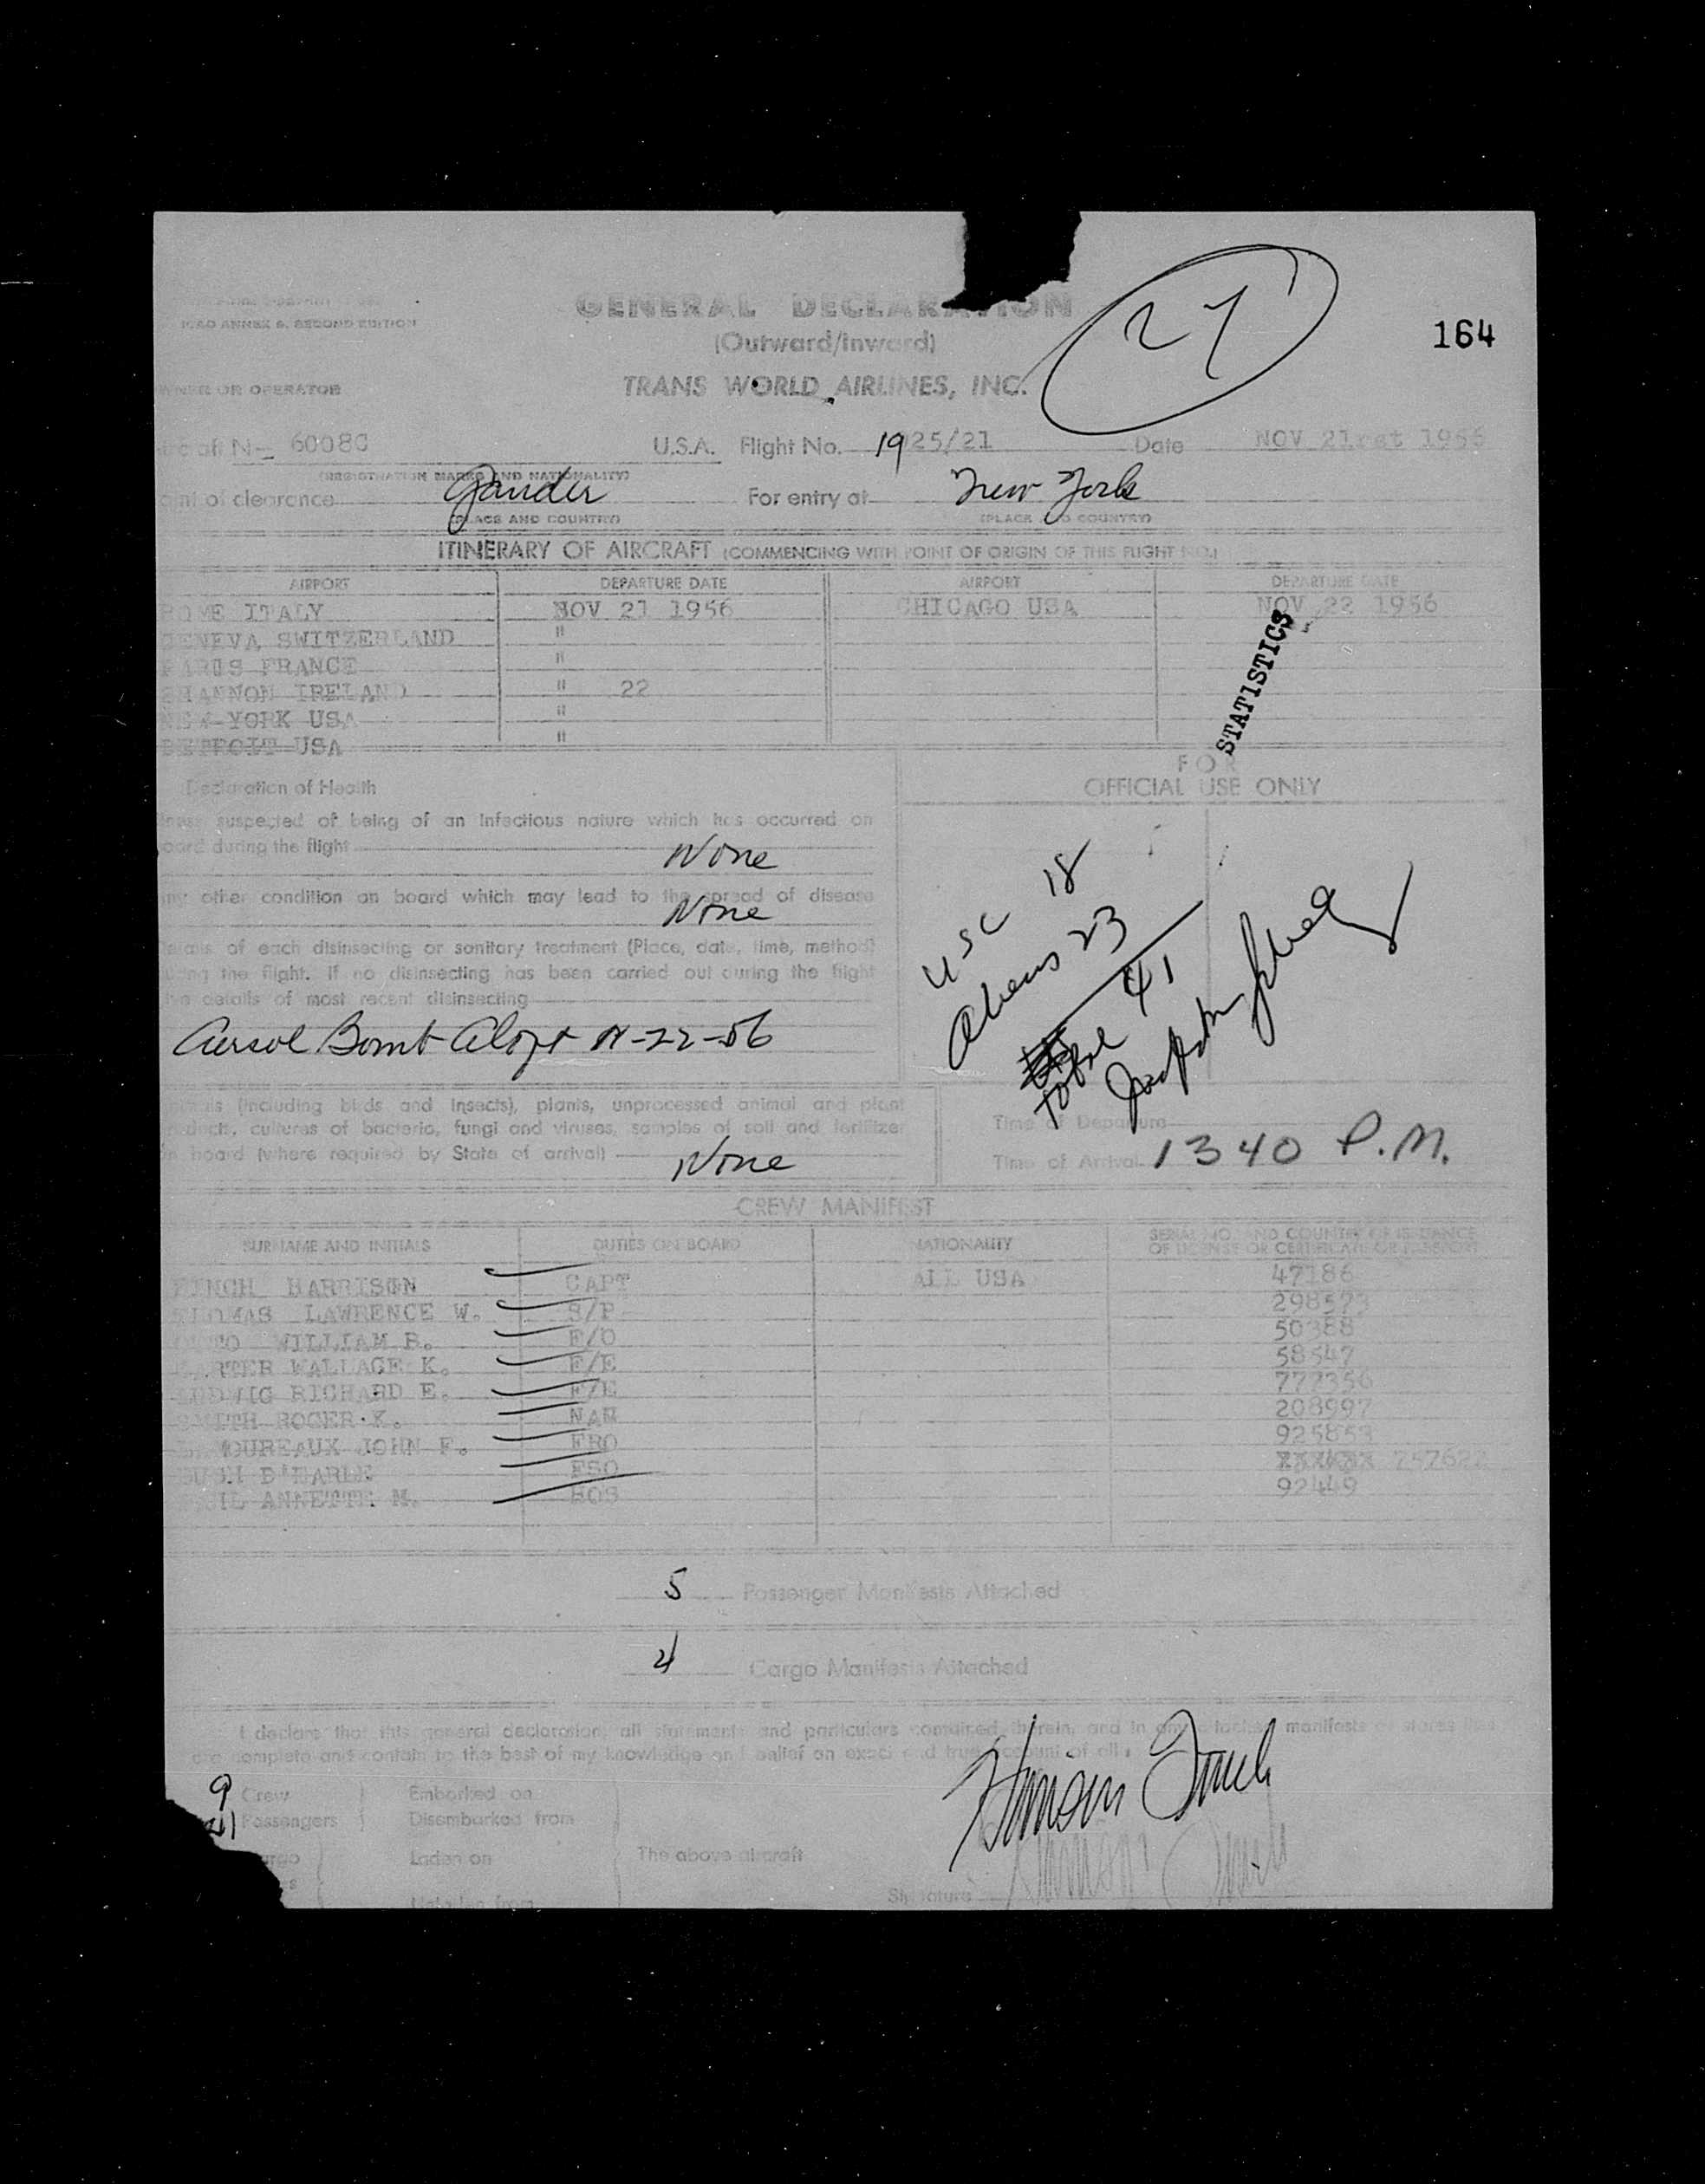 ICAO ANNEX 9, SECOND EDITION
GENERAL DECLARATION
(Outward/Inward)
27
164
OWNER OR OPERATOR
TRANS WORLD AIRLINES, INC.
N- 6008C
U.S.A. Flight No. 1925/21
Date NOV 21st 1956
(REGISTRATION MARKS AND NATIONALITY)
of clearance Gander
For entry at New York
(PLACE AND COUNTRY)
(PLACE AND COUNTRY)
ITINERARY OF AIRCRAFT (COMMENCING WITH POINT OF ORIGIN OF THIS FLIGHT NO.)
AIRPORT DEPARTURE DATE AIRPORT DEPARTURE DATE
ROME ITALY NOV 21 1956 CHICAGO USA NOV 22 1956
GENEVA SWITZERLAND "
PARIS FRANCE "
SHANNON IRELAND " 22
NEW-YORK USA "
DETROIT USA "
STATISTICS
Declaration of Health
suspected of being of an infectious nature which has occurred on
board during the flight
None
any other condition on board which may lead to the spread of disease
None
Details of each disinsecting or sanitary treatment (Place, date, time, method)
during the flight. If no disinsecting has been carried out during the flight
give details of most recent disinsecting
Bomb 11-22-56
FOR
OFFICIAL USE ONLY
USC 18
Aliens 23
Total 41
(including birds and insects), plants, unprocessed animal and plant
products, cultures of bacteria, fungi and viruses, samples of soil and fertilizer
on board (where required by State of arrival)
None
Time of Departure
Time of Arrival 1340 P.M.
CREW MANIFEST
SURNAME AND INITIALS DUTIES ON BOARD NATIONALITY SERIAL NO. AND COUNTRY OF ISSUANCE
OF LICENSE OR CERTIFICATE OR PASSPORT
FINCH HARRISON CAPT ALL USA 47186
THOMAS LAWRENCE W. S/P 298573
WILLIAM B. F/O 50388
WALLACE K. F/E 58547
LUDWIG RICHARD E. F/E 777356
SMITH ROGER K. NAV 208997
LAMOUREAUX JOHN F. FRO 925853
D'EARLE FSO 257622
ANNETTE M. HOS 92449
5 Passenger Manifests Attached
4 Cargo Manifests Attached
I declare that this general declaration, all statements and particulars contained therein, and in any attached manifests or stores lists
are complete and contain to the best of my knowledge and belief an exact and true account of all
9 Crew
Embarked on
41 Passengers
Disembarked from
Cargo
Laden on
The above aircraft
Unladen from
Signature
Harrison Finch
Harrison Finch